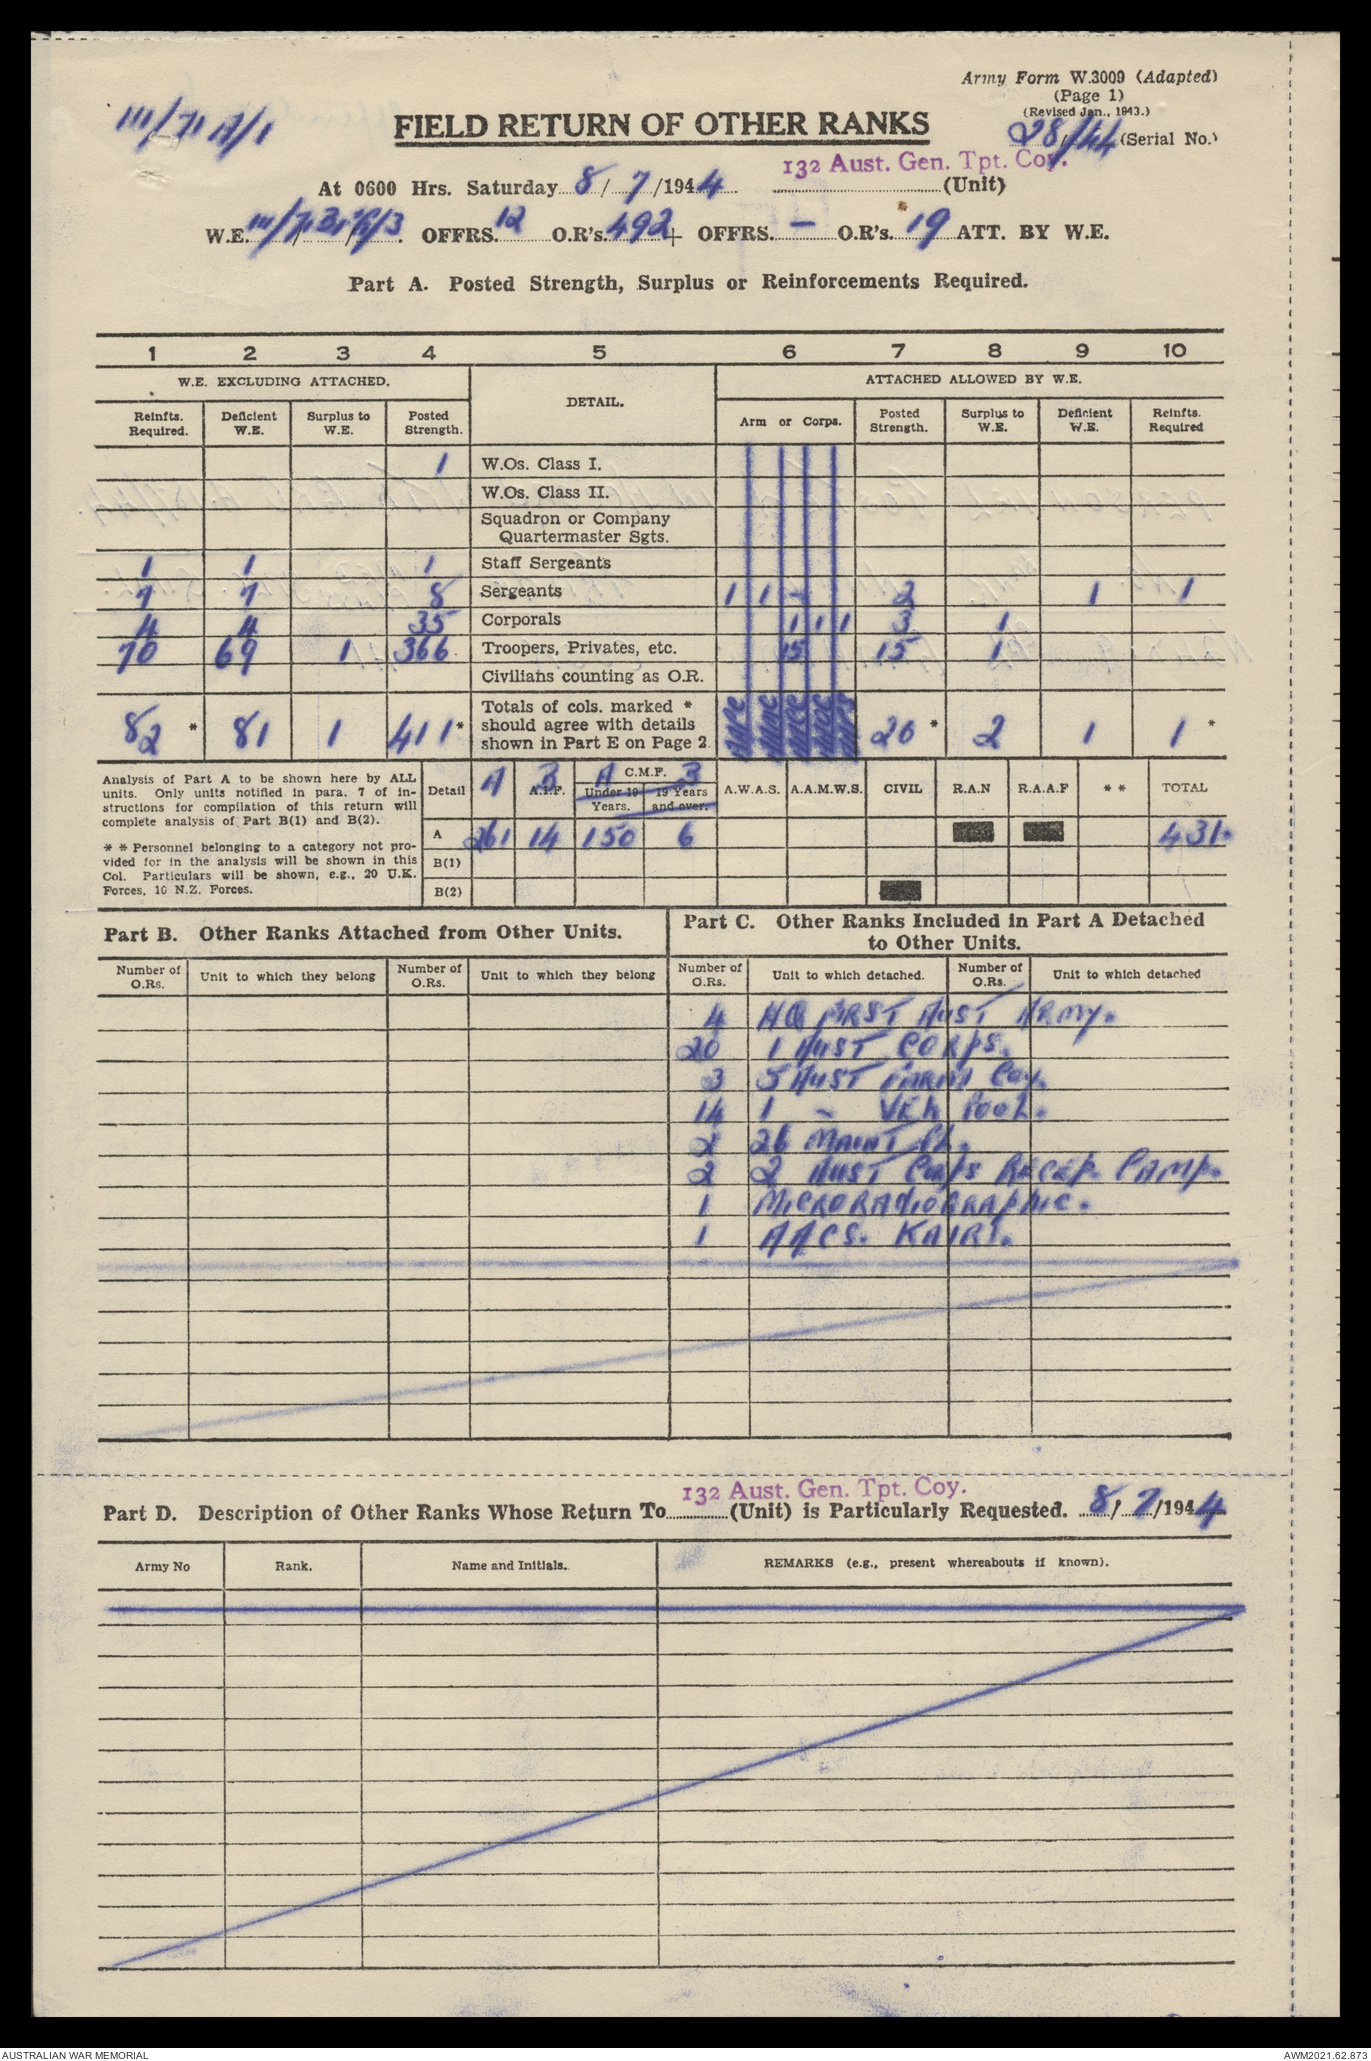 Army Form W.3009 (Adapted)
(Page 1)
(Revised Jan., 1943.)
28/44 (Serial No.)
FIELD RETURN OF OTHER RANKS
132 Aust. Gen. Tpt. Coy.
At 0600 Hrs. Saturday 8/7/1944 (Unit)
W.E. OFFRS. 12 O.R's. 492 + OFFRS. — O.R's. 19 ATT. BY W.E.
Part A. Posted Strength, Surplus or Reinforcements Required.
1 2 3 4 5 6 7 8 9 10
W.E. EXCLUDING ATTACHED. DETAIL. ATTACHED ALLOWED BY W.E.
Reinfts. Required. Deficient W.E. Surplus to W.E. Posted Strength. Arm or Corps. Posted Strength. Surplus to W.E. Deficient W.E. Reinfts. Required
1 W.Os. Class I.
W.Os. Class II.
Squadron or Company
Quartermaster Sgts.
1 1 1 Staff Sergeants
7 7 8 Sergeants 1 1 - 2 1 1
4 4 35 Corporals 1 1 1 3 1
70 69 1 366 Troopers, Privates, etc. 15 15 1
Civilians counting as O.R.
82 * 81 1 411 * Totals of cols. marked * should agree with details shown in Part E on Page 2. 20 * 2 1 1 *
Analysis of Part A to be shown here by ALL
units. Only units notified in para. 7 of in-
structions for compilation of this return will
complete analysis of Part B(1) and B(2).
* * Personnel belonging to a category not pro-
vided for in the analysis will be shown in this
Col. Particulars will be shown, e.g., 20 U.K.
Forces, 10 N.Z. Forces.
Detail A B A.I.F. A C.M.F. B Under 19 Years. 19 Years and over. A.W.A.S. A.A.M.W.S. CIVIL R.A.N R.A.A.F * * TOTAL
A 261 14 150 6 431
B(1)
B(2)
Part B. Other Ranks Attached from Other Units.
Part C. Other Ranks Included in Part A Detached
to Other Units.
Number of O.Rs. Unit to which they belong Number of O.Rs. Unit to which they belong Number of O.Rs. Unit to which detached. Number of O.Rs. Unit to which detached
4 HQ FIRST AUST ARMY.
20 1 AUST CORPS.
3 5 AUST FARM Coy.
14 1 - VEH POOL.
2 26 MAINT PL.
2 2 AUST CORPS RECEP. CAMP.
1 MICRORADIOGRAPHIC.
1 AACS. KAIRI.
132 Aust. Gen. Tpt. Coy.
Part D. Description of Other Ranks Whose Return To (Unit) is Particularly Requested. 8/7/1944
Army No Rank. Name and Initials. REMARKS (e.g., present whereabouts if known).
AUSTRALIAN WAR MEMORIAL AWM2021.62.873